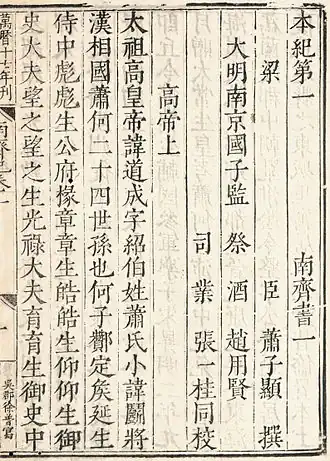 本紀第一 南齊書一
梁 臣 蕭子顯 撰
大明南京國子監 祭 酒 趙用賢
司 業 張一桂同校
高帝上
太祖高皇帝諱道成字紹伯姓蕭氏小諱鬬將
漢相國蕭何二十四世孫也何子酇定矦延生
侍中彪彪生公府掾章章生皓皓生仰仰生御
史大夫望之望之生光祿大夫育育生御史中
萬曆十七年刊
吳郡徐普寫